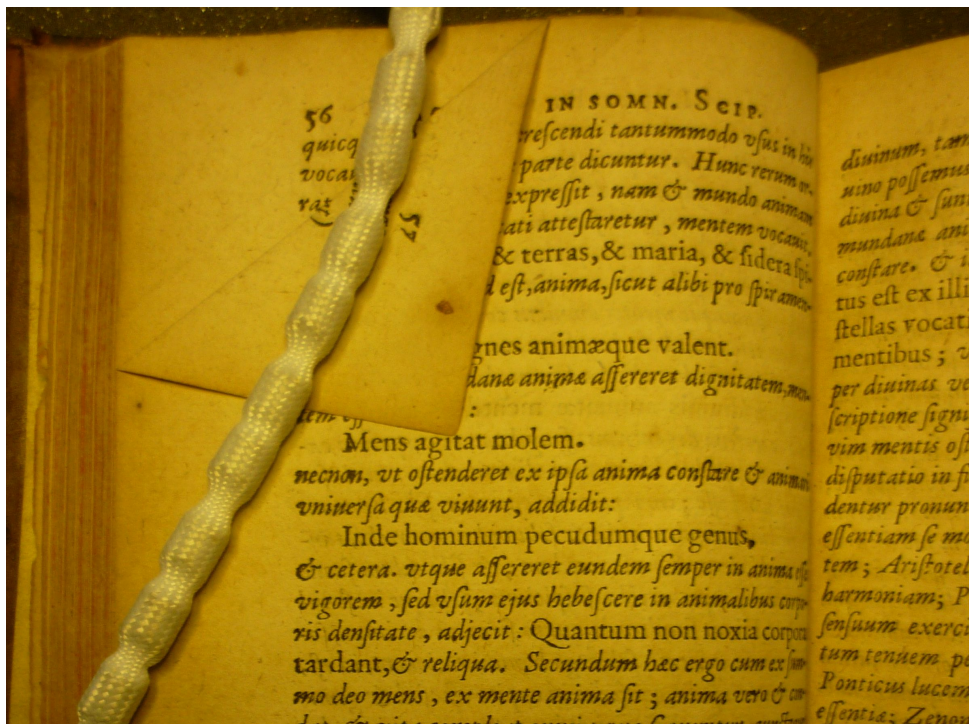 56 IN SOMN. SCIP.
quicq reſcendi tantummodo vſus in
voca parte dicuntur. Hunc rerum or-
rat expreſſit, nam & mundo animam
ati atteſtaretur, mentem vocauit,
& terras, & maria, & ſidera ſpi-
d eſt, anima, ſicut alibi pro ſpiramen-
57
gnes animæque valent.
danæ animæ aſſereret dignitatem, men-
tem eſſ :
Mens agitat molem.
necnon, vt oſtenderet ex ipſa anima conſtare & animari
vniuerſa quæ viuunt, addidit:
Inde hominum pecudumque genus,
& cetera. vtque aſſereret eundem ſemper in anima eſſe
vigorem, ſed vſum ejus hebeſcere in animalibus corpo-
ris denſitate, adjecit: Quantum non noxia corpora
tardant, & reliqua. Secundum hæc ergo cum ex ſum-
mo deo mens, ex mente anima ſit; anima vero & con-
diuinum, tam
uino poſſemus
diuina & ſuni
mundanæ ani
conſtare. & i
tus eſt ex illi
ſtellas vocati
mentibus; v
per diuinas ve
ſcriptione ſigni
vim mentis oſt
diſputatio in fi
dentur pronun
eſſentiam ſe mo
tem; Ariſtotel
harmoniam; P
ſenſuum exerci
tum tenuem pe
Ponticus lucem
eſſentiæ; Zeno